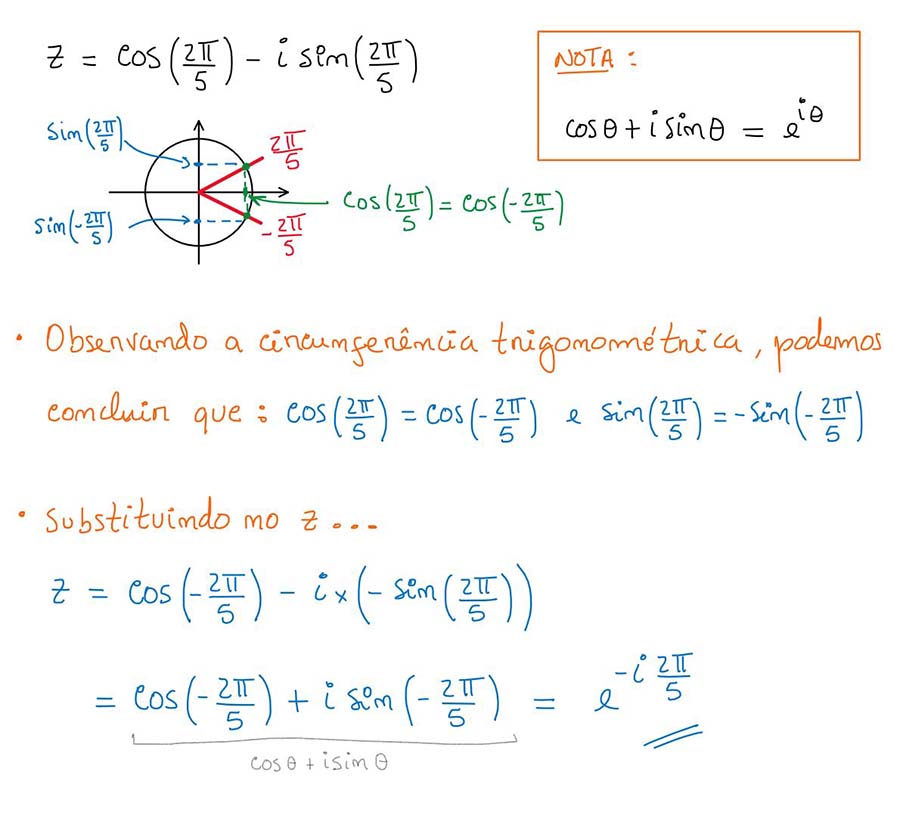 z = cos(2π/5) - i sin(2π/5)
NOTA :
cosθ + i sinθ = e^{iθ}
sin(2π/5)
2π/5
cos(2π/5) = cos(-2π/5)
sin(-2π/5)
-2π/5
• Observando a circunferência trigonométrica, podemos
concluir que : cos(2π/5) = cos(-2π/5) e sin(2π/5) = -sin(-2π/5)
• Substituindo no z ...
z = cos(-2π/5) - i × (- sin(2π/5))
= cos(-2π/5) + i sin(-2π/5) = e^{-i 2π/5}
cosθ + i sinθ